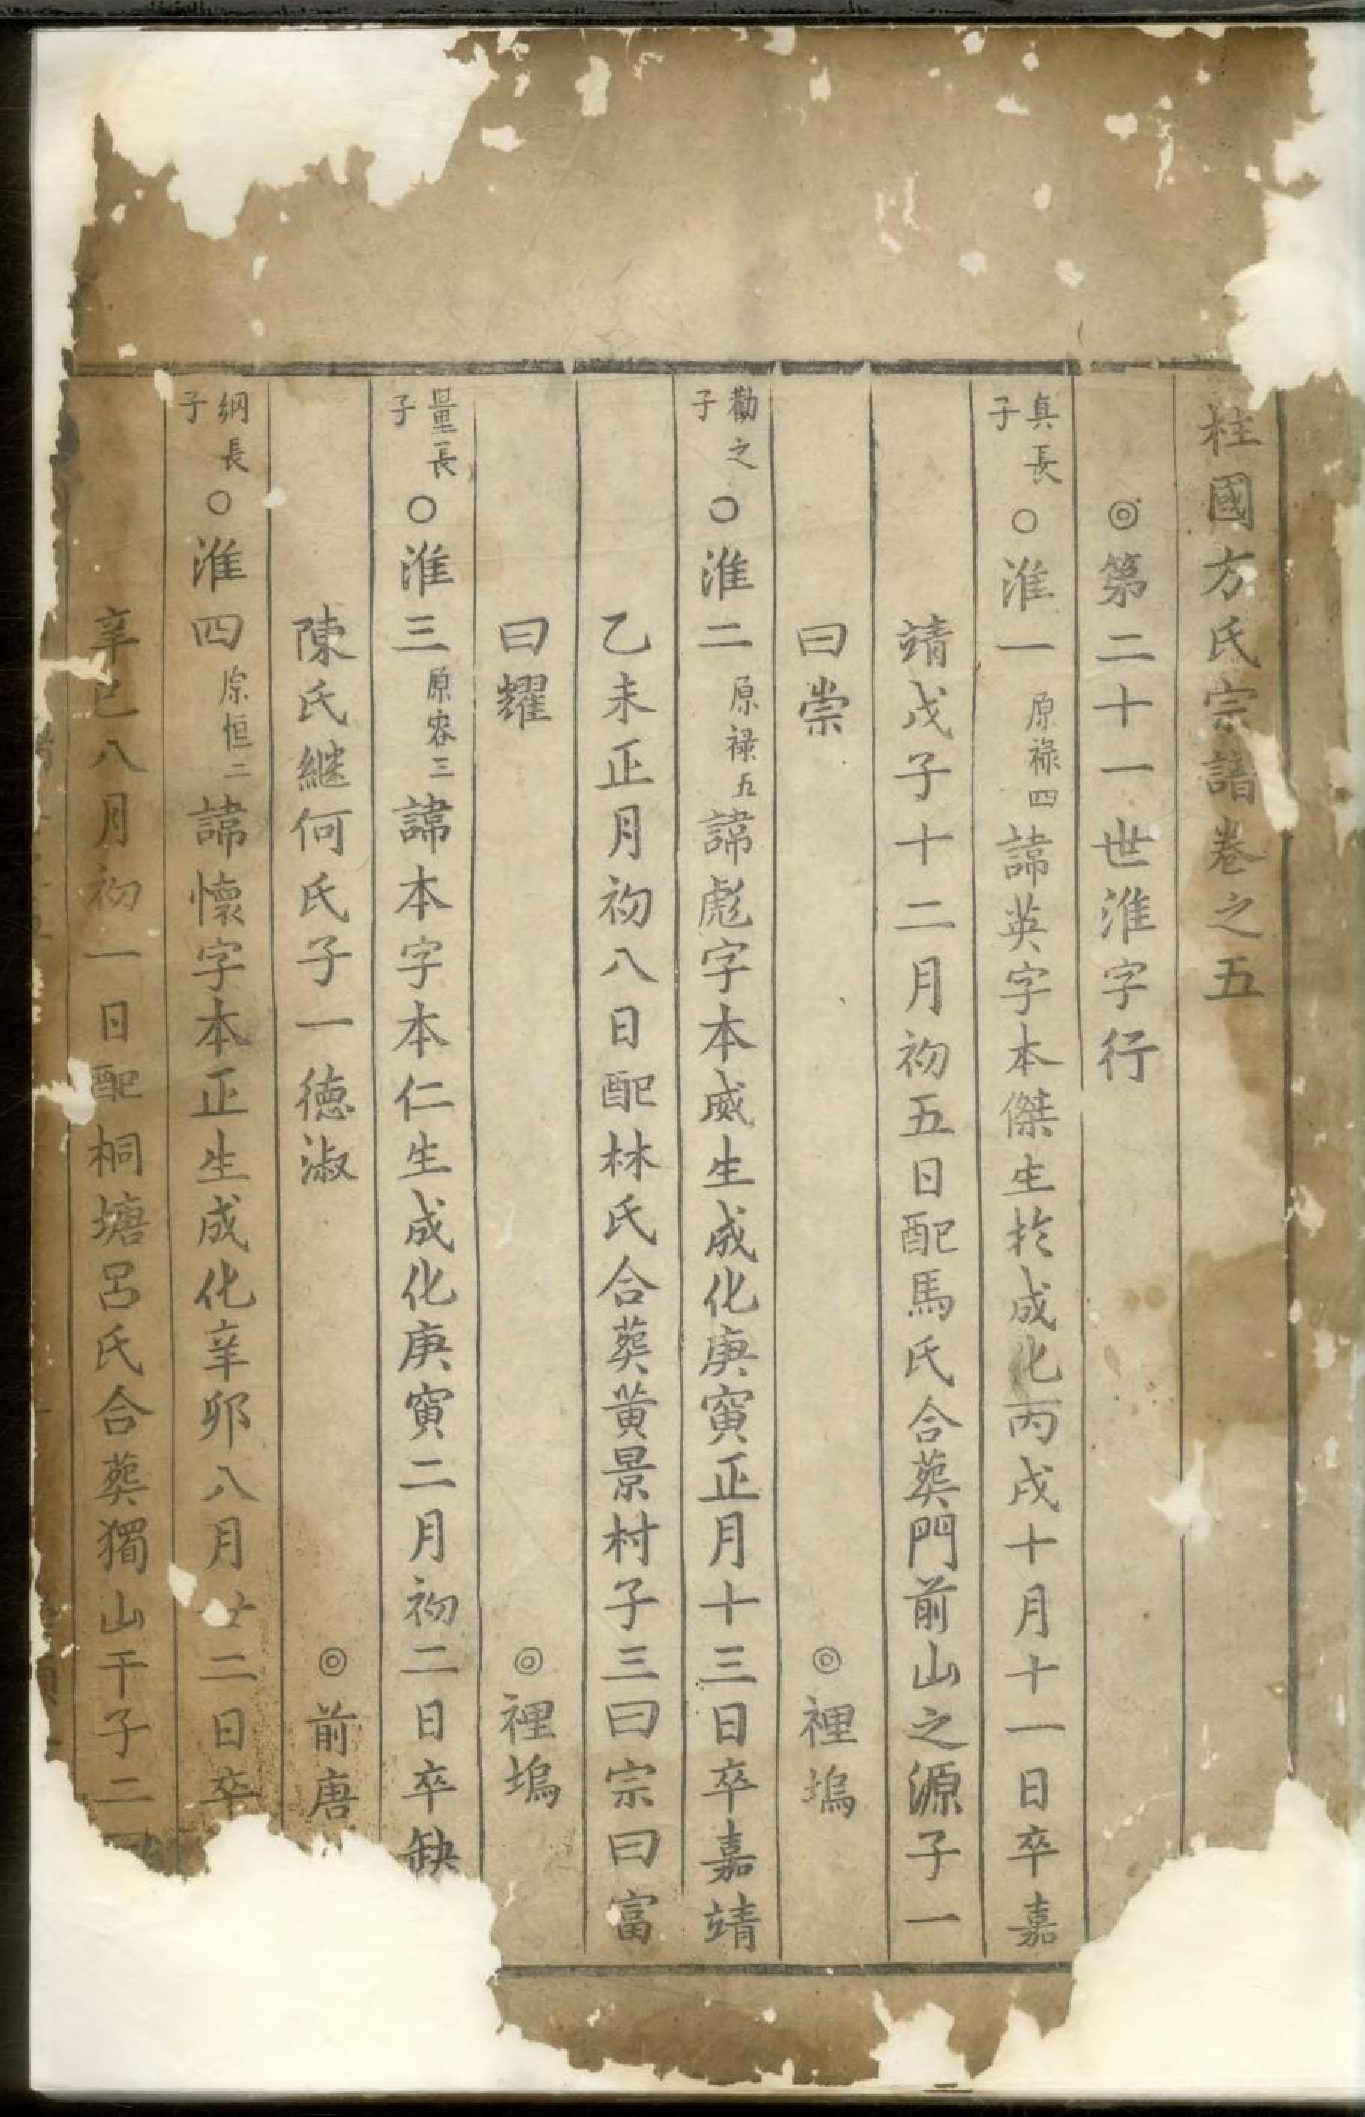 柱國方氏宗譜卷之五
◎第二十一世淮字行
真長子○淮一原祿四諱英字本傑生於成化丙戌十月十一日卒嘉
靖戊子十二月初五日配馬氏合葬門前山之源子一
曰崇　◎裡塢
勸之子○淮二原禄五諱彪字本威生成化庚寅正月十三日卒嘉靖
乙未正月初八日配林氏合葬黄景村子三曰宗曰富
曰耀　◎裡塢
量長子○淮三原容三諱本字本仁生成化庚寅二月初二日卒缺
陳氏繼何氏子一德淑　◎前唐
綱長子○淮四原恒二諱懷字本正生成化辛卯八月廿二日卒
辛巳八月初一日配桐塘呂氏合葬獨山干子二曰